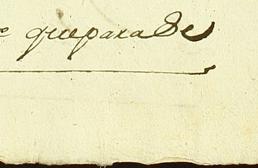 que para de